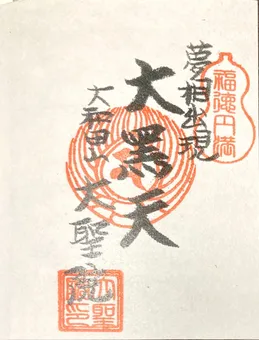 福徳円満
夢相出現
大黑天
大和田山 大聖院